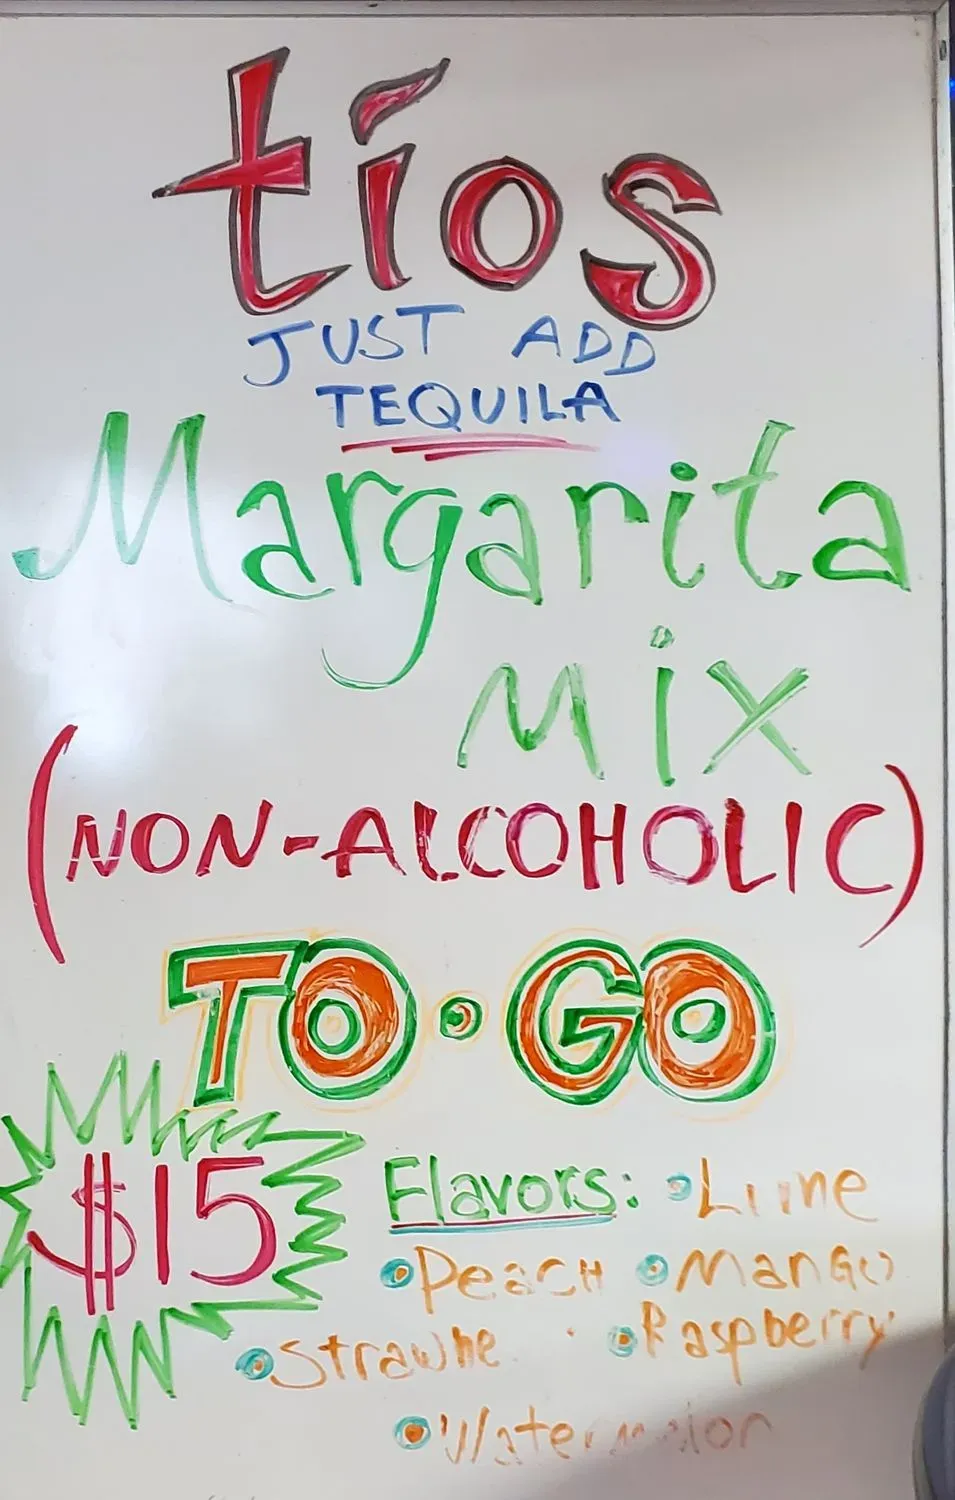 tíos
JUST ADD
TEQUILA
Margarita
Mix
(NON-ALCOHOLIC)
TO•GO
$15
Flavors: •Lime
•Peach •Mango
•Strawbe •Raspberry
•Watermelon